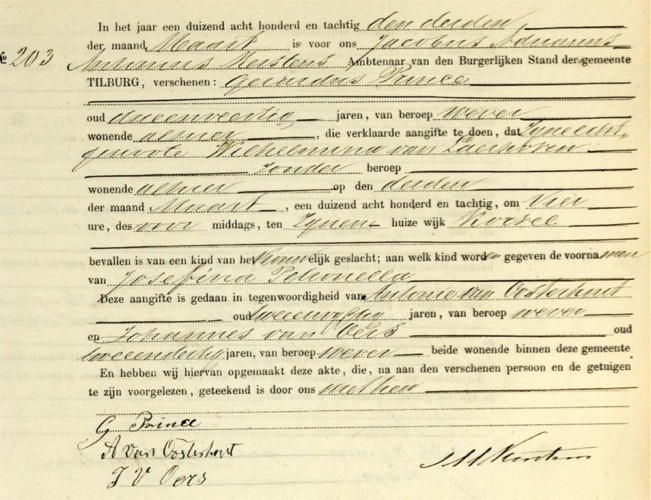 In het jaar een duizend acht honderd en tachtig den derden
№ 203 der maand Maart is voor ons Jacobus Adrianus
Ambtenaar van den Burgerlijken Stand der gemeente
TILBURG, verschenen: Gerardus Prince
oud drieenveertig jaren, van beroep wever
wonende alhier, die verklaarde aangifte te doen, dat Zyne echt
genoote Wilhelmina van Laerhoven
zonder beroep
wonende alhier op den derden
der maand Maart, een duizend acht honderd en tachtig, om vier
ure, des voor middags, ten Zynen huize wijk Korvel
bevallen is van een kind van het vrouwelijk geslacht; aan welk kind worden gegeven de voornamen
van Josefina Petronella
Deze aangifte is gedaan in tegenwoordigheid van Antonie van Oosterhout
oud jaren, van beroep wever
en Johannes van Oers oud
tweeendertig jaren, van beroep wever beide wonende binnen deze gemeente
En hebben wij hiervan opgemaakt deze akte, die, na aan den verschenen persoon en de getuigen
te zijn voorgelezen, geteekend is door ons met hen
G Prince
A van Oosterhout
J V Oers